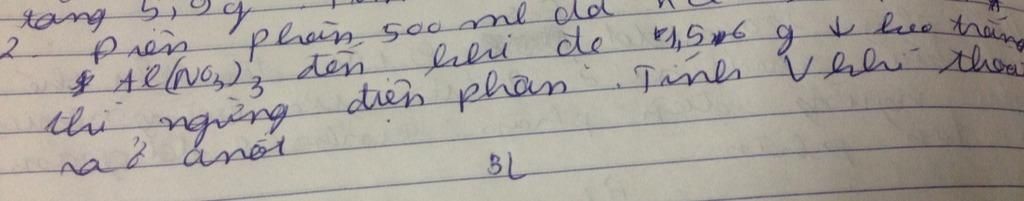 tăng 5,9g
2 Điện phân 500 ml dd
Al(NO3)3 đến khi dc 1,56 g ↓ keo trắng
thì ngừng điện phân. Tính V khí thoát
ra ở anốt
3L